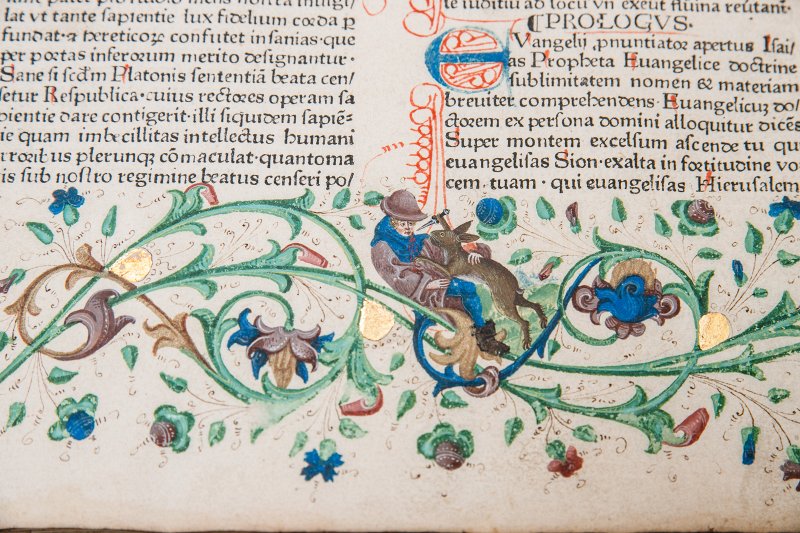 lat ut tante sapientie lux fidelium coꝛda ꝑ
fundat · a hereticoꝛꝫ confutet insanias · que
per poꝛtas inferoꝛum merito designantur ·
Sane si scd̄m Platonis sententiā beata cen/
setur Respublica · cuius rectoꝛes operam sa
pientie dare contigerit · illi siquidem sapiē⸗
ie quam imbecillitas intellectus humani
turoꝛibus plerunqꝫ cōmaculat · quantoma
is sub nostro regimine beatus censeri po/
te iuditiū ad locū vn̄ exeūt flūina reūtant ·
¶PROLOGVS ·
EVangelij ꝓnuntiatoꝛ apertus Isai/
as Propheta Euangelice doctrine
sublimitatem nomen & materiam
breuiter comprehendens · Euangelicuꝫ do/
ctoꝛem ex persona domini alloquitur dicēs
Super montem excelsum ascende tu qui
euangelisas Sion · exalta in foꝛtitudine vo
cem · tuam · qui euangelisas Hierusalem